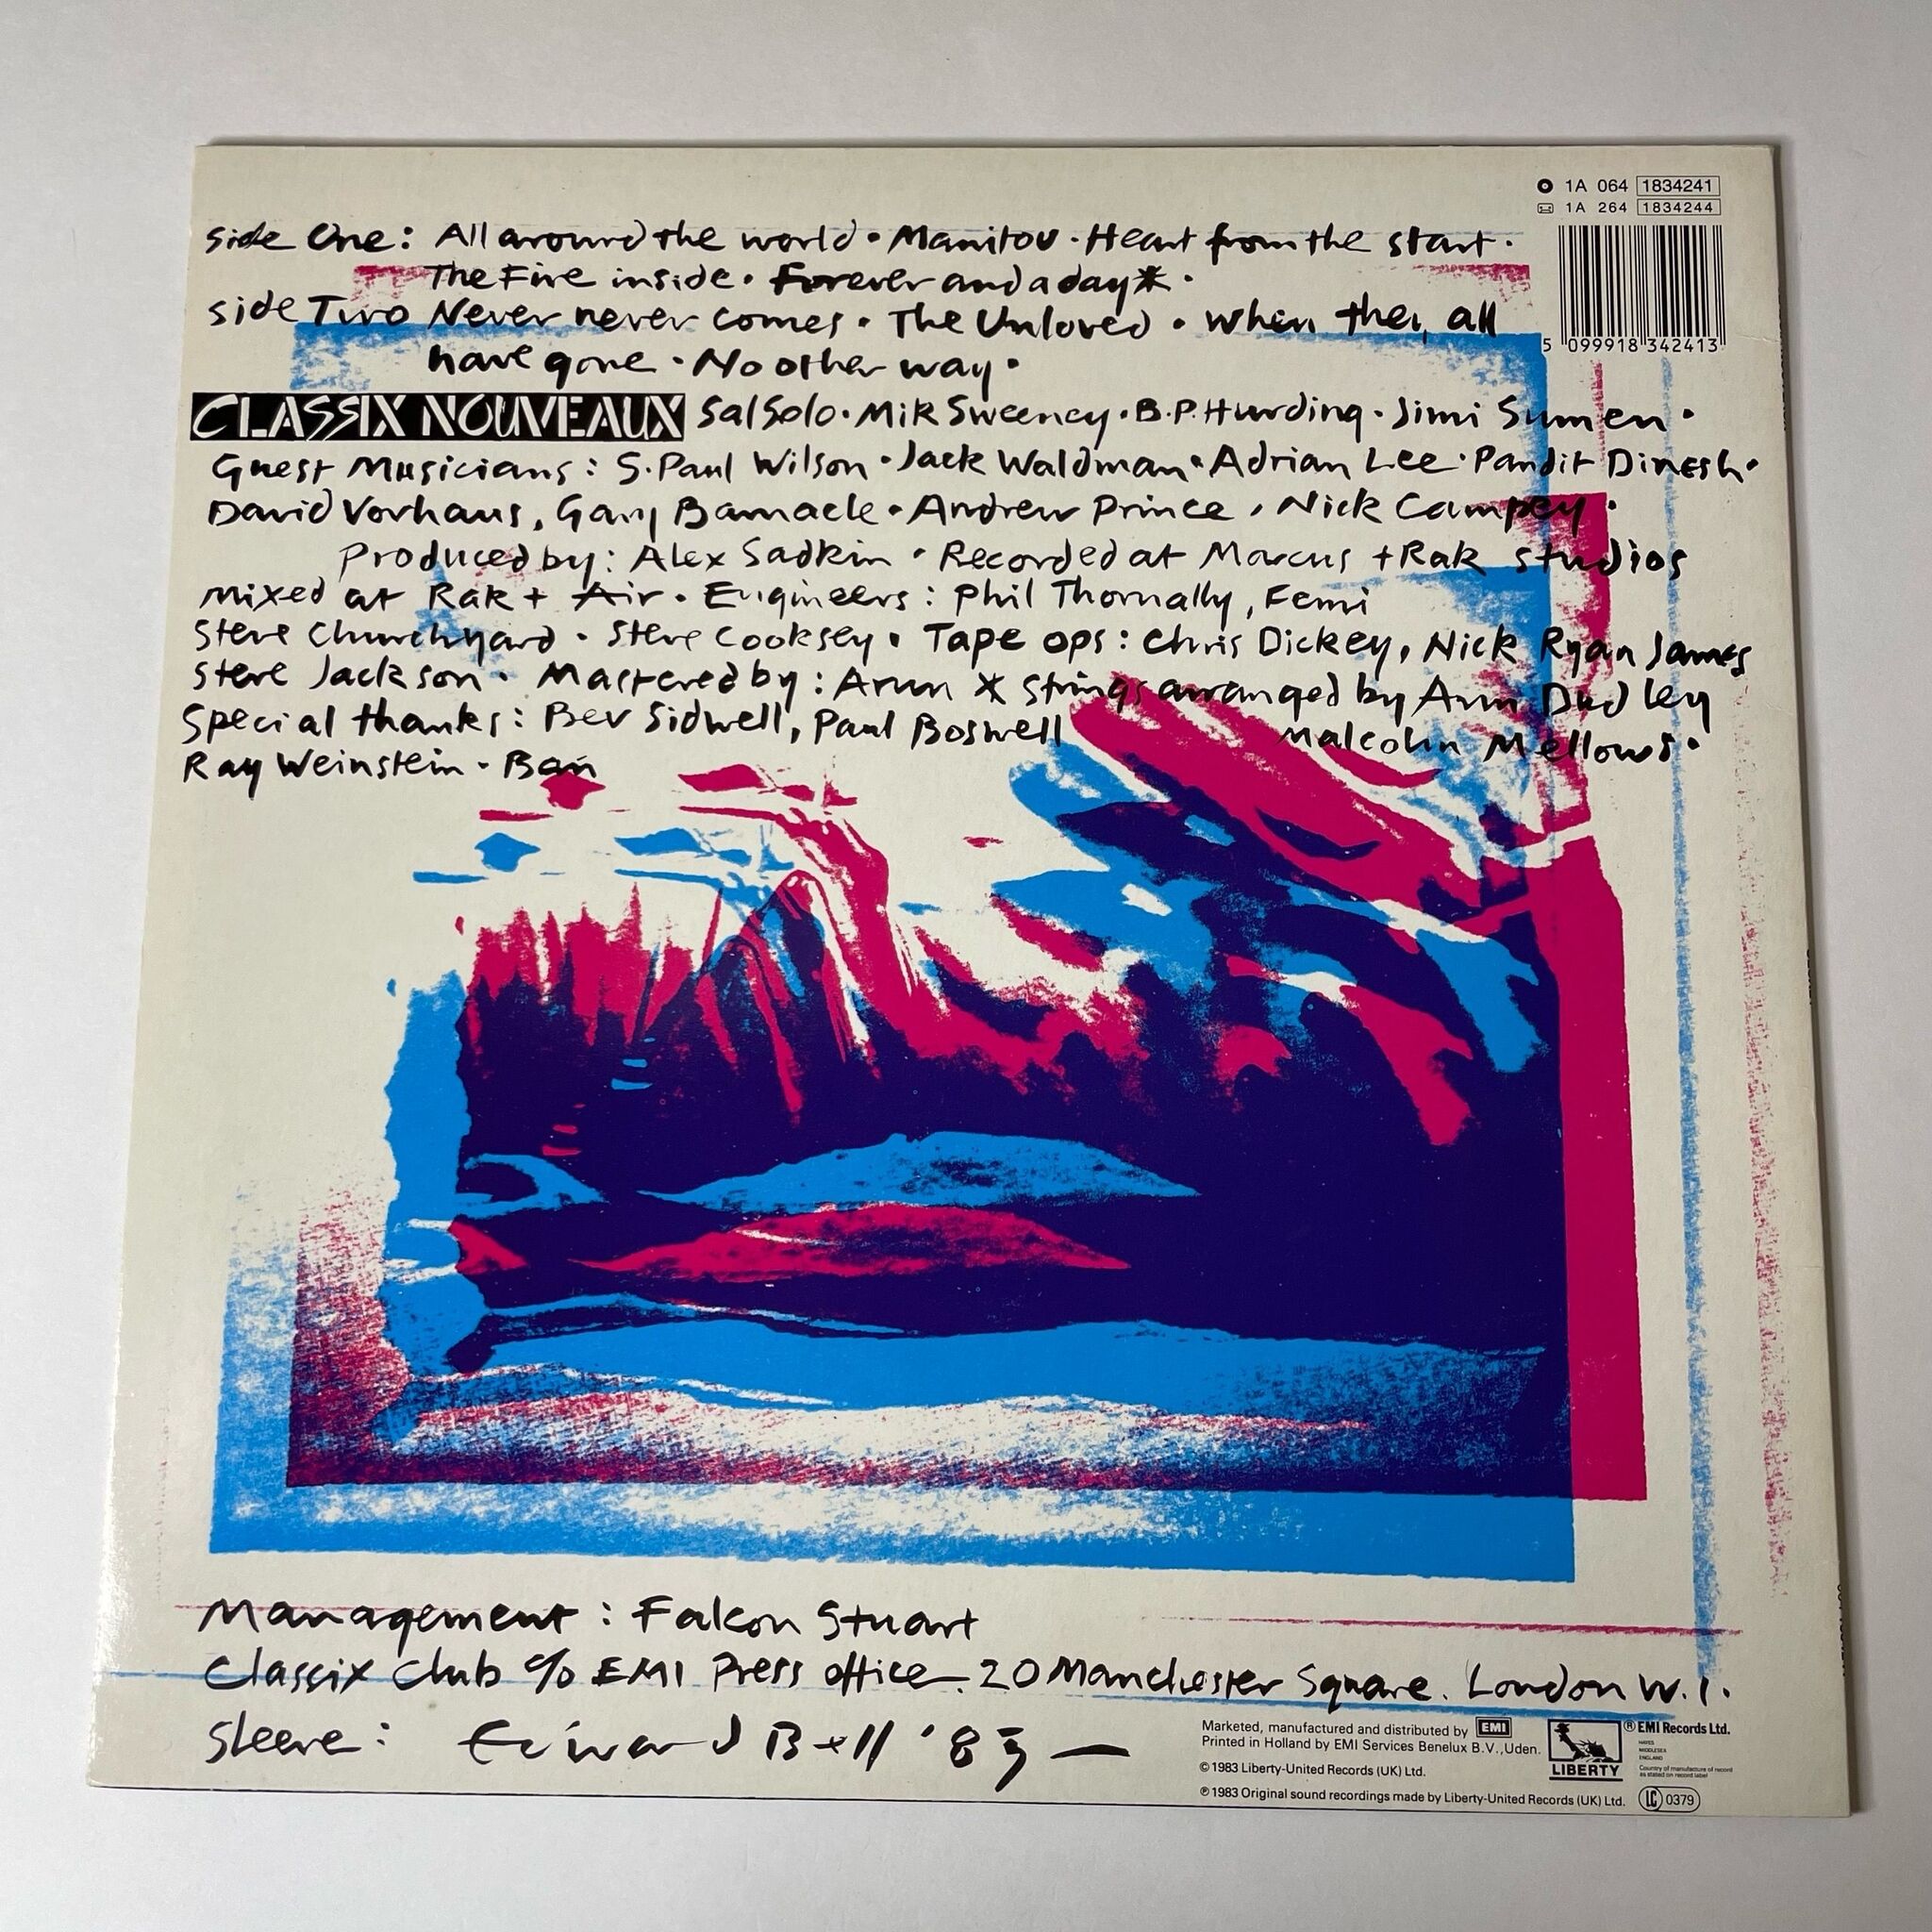 1A 064 1834241
1A 264 1834244
Side One: All around the world · Manitou · Heart from the start ·
The Fire inside · Forever and a day* ·
Side Two Never never comes · The Unloved · When they all
have gone · No other way ·
5 099918 342413
CLASSIX NOUVEAUX Sal Solo · Mik Sweeney · B.P. Hurding · Jimi Sumen ·
Guest Musicians: S. Paul Wilson · Jack Waldman · Adrian Lee · Pandit Dinesh ·
David Vorhaus, Gary Barnacle · Andrew Prince, Nick Campey ·
Produced by: Alex Sadkin · Recorded at Marcus + Rak studios
Mixed at Rak + Air · Engineers: Phil Thornally, Femi
Steve Churchyard · Steve Cooksey · Tape ops: Chris Dickey, Nick Ryan James
Steve Jackson · Mastered by: Arun * Strings arranged by Ann Dudley
Special thanks: Bev Sidwell, Paul Boswell Malcolm Mellows ·
Ray Weinstein · Ban
Management: Falcon Stuart
Classix Club c/o EMI Press office. 20 Manchester Square. London W.1.
Sleeve: Edward Bell '83 —
Marketed, manufactured and distributed by EMI
Printed in Holland by EMI Services Benelux B.V., Uden.
© 1983 Liberty-United Records (UK) Ltd.
℗ 1983 Original sound recordings made by Liberty-United Records (UK) Ltd.
LIBERTY
® EMI Records Ltd.
HAYES
MIDDLESEX
ENGLAND
Country of manufacture of record
as stated on record label
LC 0379